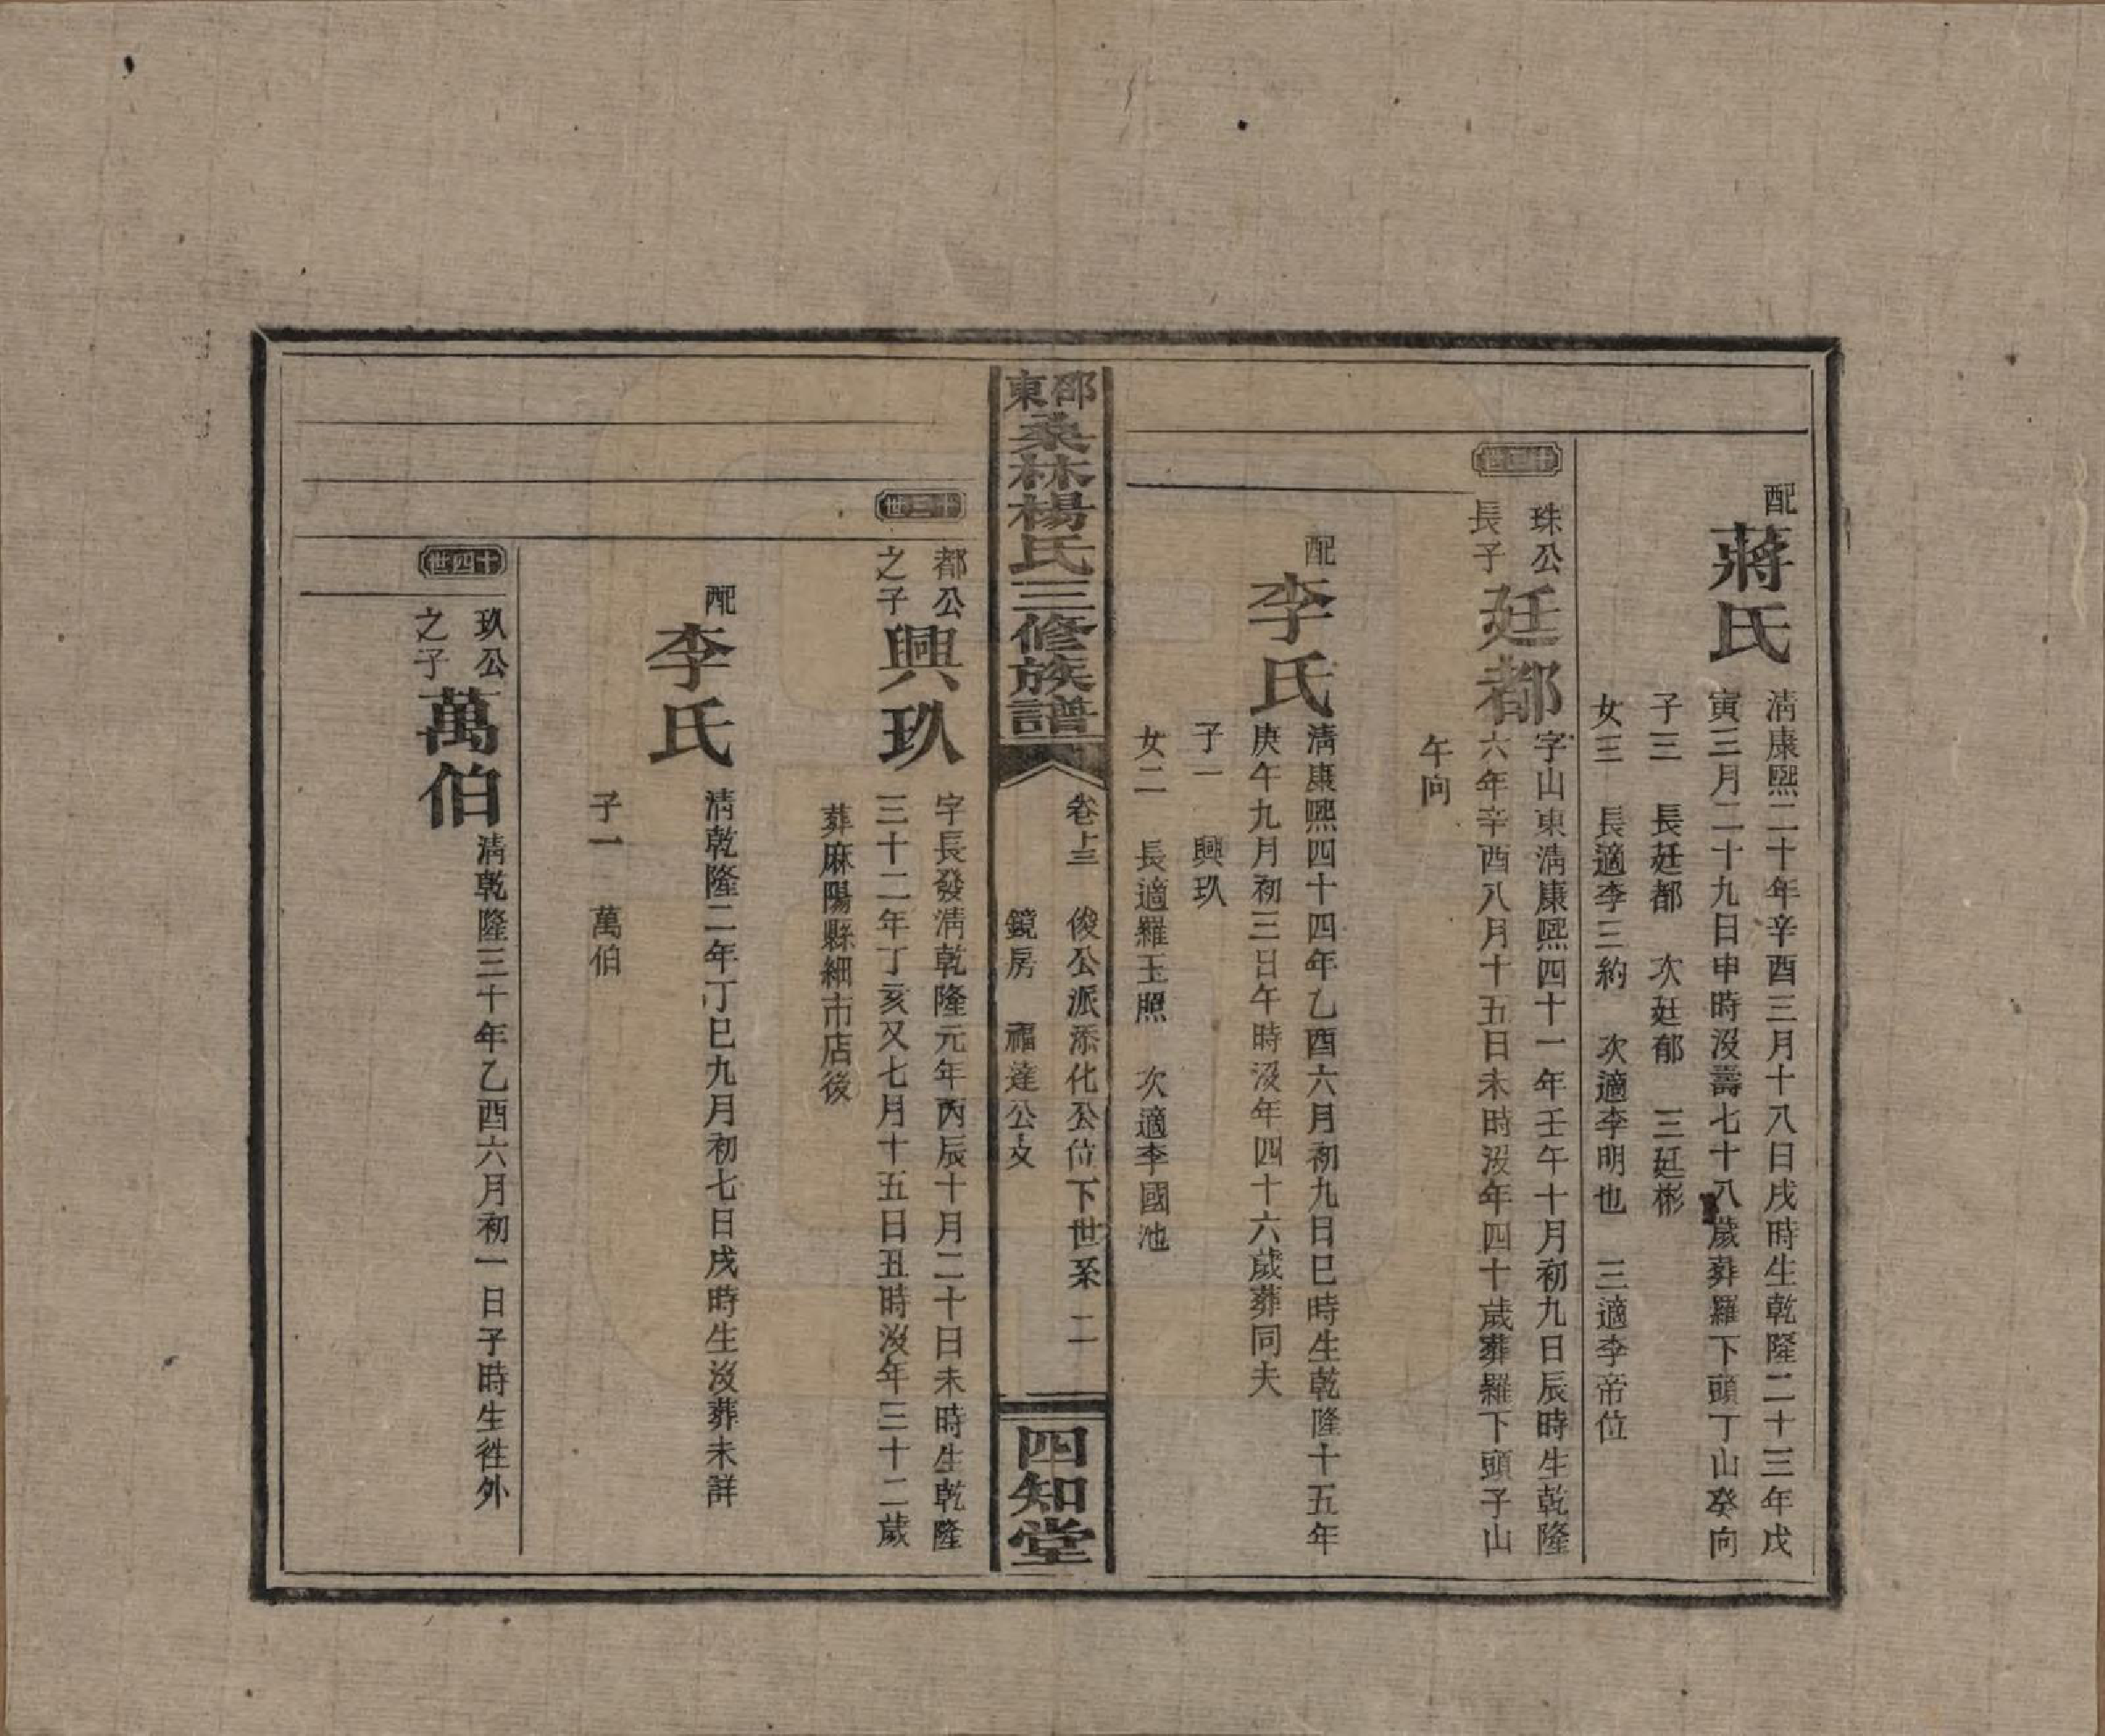 配
蔣氏
清康熙二十年辛酉三月十八日戌時生乾隆二十三年戊
寅三月二十九日申時沒壽七十八歲葬羅下頭丁山癸向
子三 長廷都 次廷郁 三廷彬
女三 長適李三約 次適李明也 三適李帝位
珠公
長子
廷都
字山東清康熙四十一年壬午十月初九日辰時生乾隆
六年辛酉八月十五日未時沒年四十歲葬羅下頭子山
午向
配
李氏
清康熙四十四年乙酉六月初九日巳時生乾隆十五年
庚午九月初三日午時沒年四十六歲葬同夫
子一 興玖
女二 長適羅玉照 次適李國池
邵東
桑林楊氏三修族譜
卷上三 俊公派添化公位下世系 二
鏡房 福達公支
四知堂
十三世
都公
之子
興玖
字長發清乾隆元年丙辰十月二十日未時生乾隆
三十二年丁亥又七月十五日丑時沒年三十二歲
葬麻陽縣細市店後
配
李氏
清乾隆二年丁巳九月初七日戌時生沒葬未詳
子一 萬伯
十四世
玖公
之子
萬伯
清乾隆三十年乙酉六月初一日子時生徃外